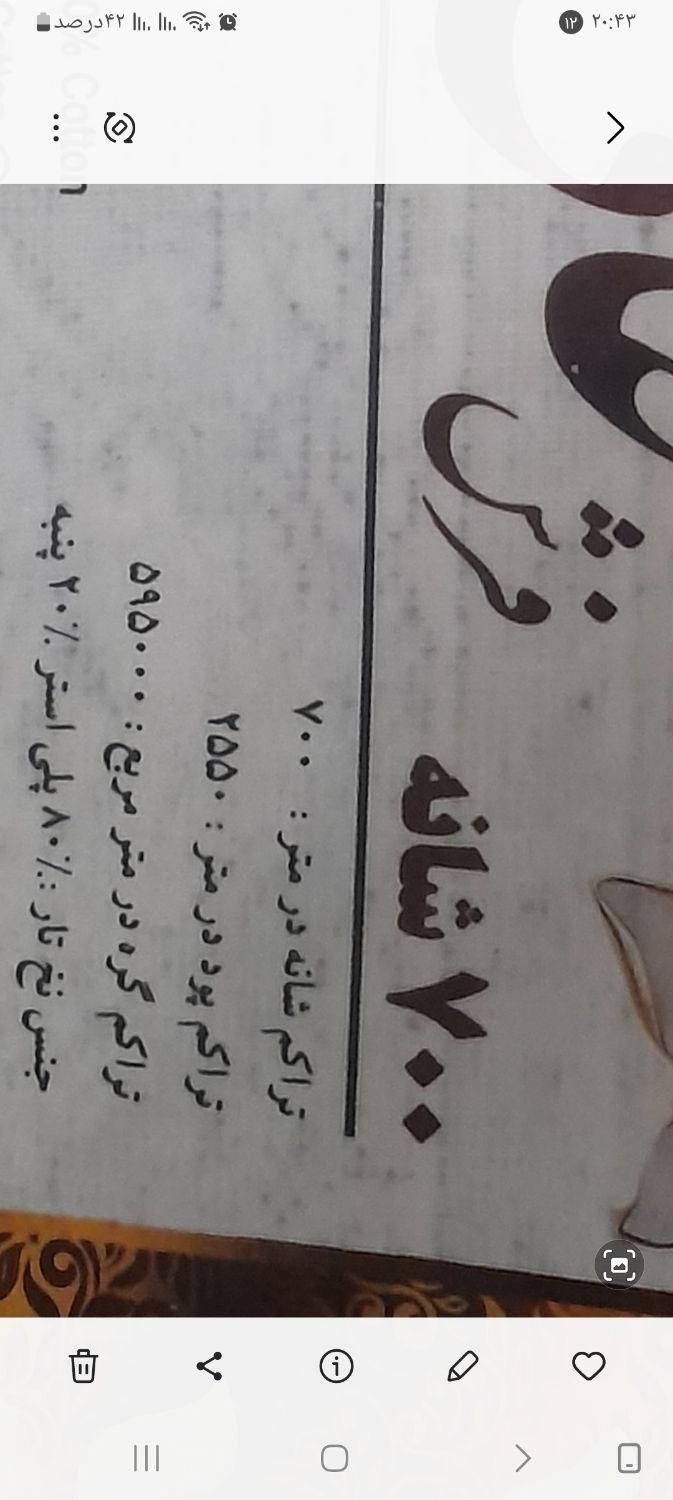 ۲۰:۴۳
۱۲
۴۲درصد
% Cotton
فرش
۷۰۰ شانه
تراکم شانه در متر : ۷۰۰
تراکم پود در متر : ۲۵۵۰
تراکم گره در متر مربع : ۵۹۵۰۰۰
جنس نخ تار :۸۰٪ پلی استر ۲۰٪ پنبه